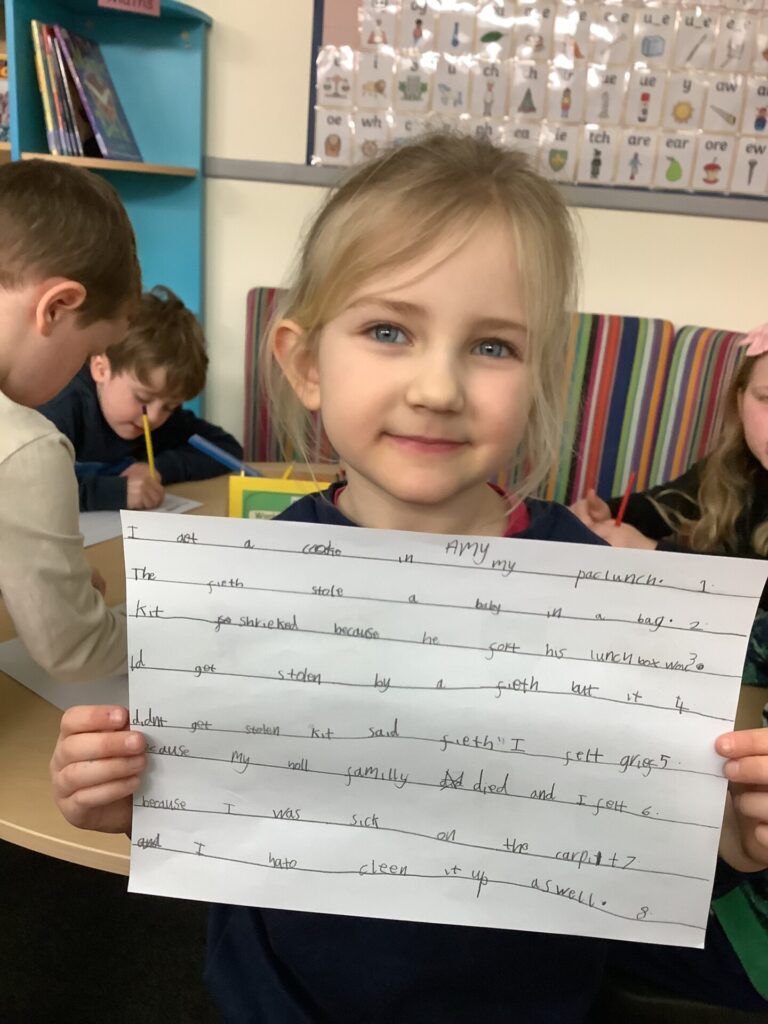 Maths
u_e u_e
ch
ue y aw
oe wh ph ea ie tch are ear ore ew
AMY
I aet a cookie in my paclunch. 1.
The fieth stole a baby in a bag. 2.
Kit shrieked because he fort his lunch box wou 3.
ld get stolen by a fieth but it 4
didnt get stolen kit said fieth" I felt grief 5.
because my holl familly died and I felt 6.
because I was sick on the carpit 7
and I hato cleen it up aswell. 8.